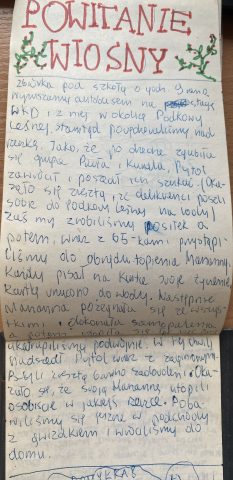 POWITANIE
WIOSNY
Zbiórka pod szkołą o godz. 9 rano
wyruszamy autobusem na stację
WKD i z niej w okolice Podkowy
Leśnej, stamtąd powędrowaliśmy nad
rzekę. Jako, że po drodze zgubiła
się grupa Pawła i Kamila, Pytol
zawrócił i poszedł ich szukać. (Oka-
zało się zresztą, że delikwenci poszli
sobie do Podkowy Leśnej na lody)
zaś my zrobiliśmy posiłek a
potem, wraz z 65-kami przystąpi-
liśmy do obrzędu topienia Marzanny.
Każdy pisał na kartce swoje życzenie
kartki wrzucono do wody. Następnie
Marzanna pożegnała się ze wszys-
tkimi, i dokonała samopalenia
podwójnie. W tej chwili
nadszedł Pytol wraz z zaginionymi.
Byli zresztą bardzo zadowoleni. Oka-
zało się, że swoją Marzannę utopili
osobiście w jakiejś rzece. Poba-
wiliśmy się jeszcze w podchody
z gwizdkiem i wróciliśmy do
domu.